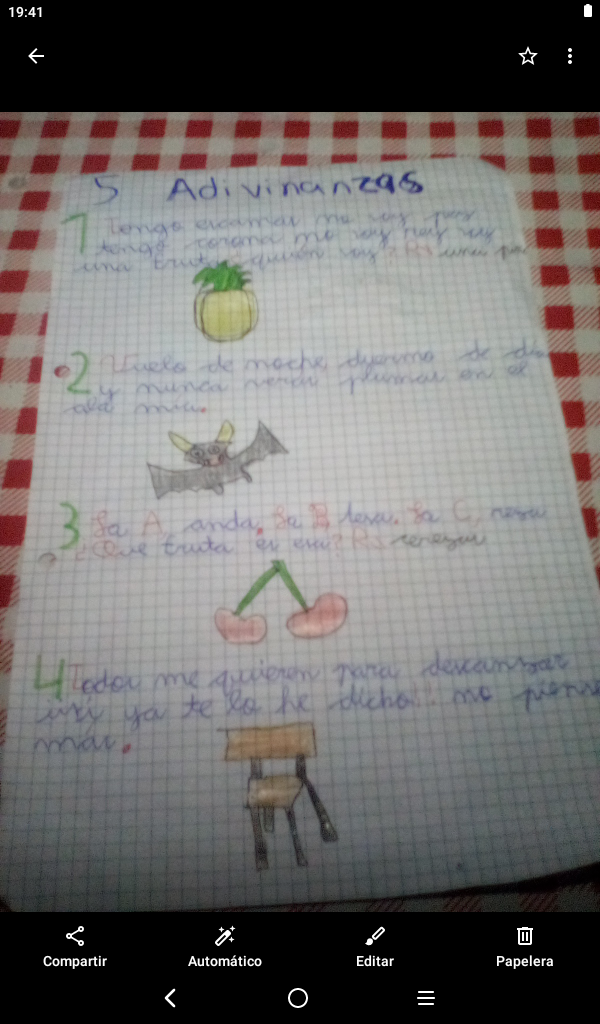 19:41
5 Adivinanzas
1 Tengo escamas no soy pez
tengo corona no soy rey soy
una fruta ¿quién soy? R= una
2 Vuelo de noche duermo de día
y nunca verás plumas en el
ala mía.
3 La A anda, La B besa, La C, reza
¿Que fruta es esa? R= cerezas
4 Todos me quieren para descansar
si ya te lo he dicho!! no
más.
Compartir
Automático
Editar
Papelera